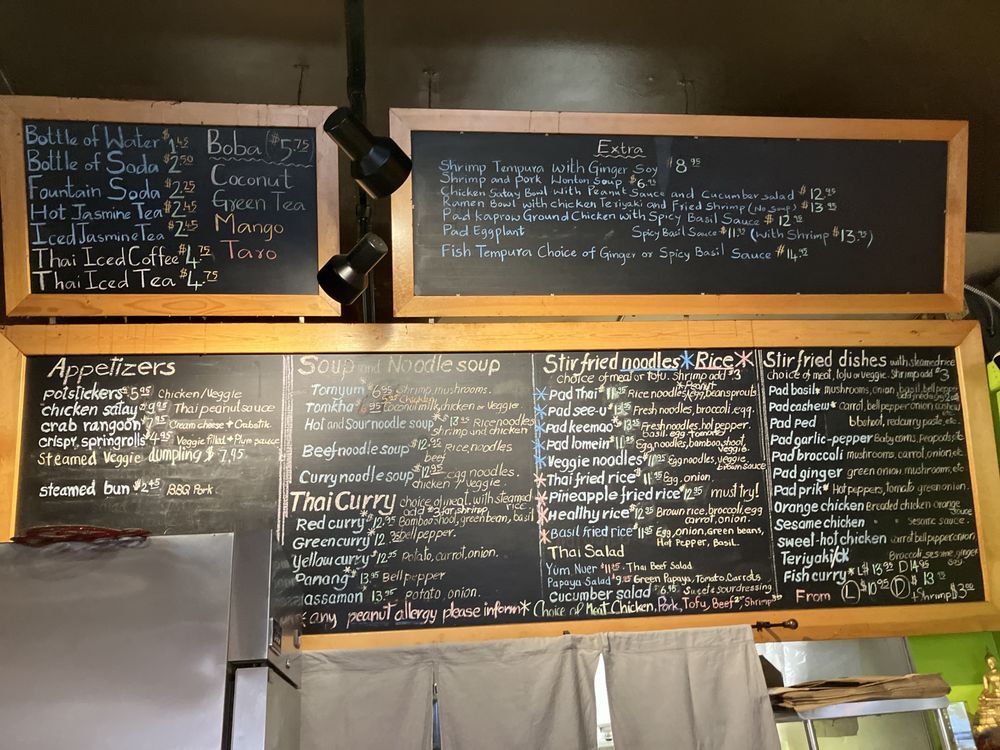 Bottle of Water $1.45
Bottle of Soda $2.50
Fountain Soda $2.25
Hot Jasmine Tea $2.45
Iced Jasmine Tea $2.45
Thai Iced Coffee $4.75
Thai Iced Tea $4.75
Boba $5.75
Coconut
Green Tea
Mango
Taro
Extra
Shrimp Tempura with Ginger Soy $8.95
Shrimp and Pork Wonton Soup $6.95
Chicken Satay Bowl with Peanut Sauce and Cucumber salad $12.95
Ramen Bowl with chicken Teriyaki and Fried Shrimp (No Soup) $13.95
Pad Kaprow Ground Chicken with Spicy Basil Sauce $12.95
Pad Eggplant Spicy Basil Sauce $11.95 (With Shrimp $13.95)
Fish Tempura Choice of Ginger or Spicy Basil Sauce $14.95
Appetizers
potstickers $5.95 Chicken/Veggie
chicken satay $9.95 Thai peanut sauce
crab rangoon $7.95 Cream cheese + Crabstik
crispy springrolls $4.95 Veggie filled + Plum sauce
Steamed Veggie dumpling $7.95
steamed bun $2.45 BBQ Pork
Soup and Noodle soup
Tomyum $6.95 Shrimp mushrooms.
Tomkha $6.95 Coconut milk, chicken or Veggie.
Hot and Sour noodle soup $13.95 Rice noodles
shrimp and chicken
Beef noodle soup $12.95 Rice, noodles
beef
Curry noodle soup $12.95 egg noodles.
chicken / veggie.
Thai Curry choice of meat, with steamed rice
add $3 for shrimp
Red curry $12.95 Bamboo shoot, green bean, basil
Green curry $12.95 bell pepper.
Yellow curry $12.95 potato, carrot, onion.
Panang* $13.95 Bell pepper
assaman $13.95 potato, onion.
any peanut allergy please inform* Choice of Meat Chicken, Pork, Tofu, Beef, Shrimp
Stir fried noodles * Rice *
choice of meat or tofu. Shrimp add $3
* Pad Thai $11.95 Rice noodles, egg, bean sprouts, Peanut
* Pad see-u $11.95 Fresh noodles, broccoli, egg.
* Pad keemao $13.95 Fresh noodles, bell pepper,
Basil, egg, tomato
* Pad lomein $11.95 Egg noodles, bamboo shoot,
veggie.
* Veggie noodles $11.95 Egg noodles, veggie
brown sauce
* Thai fried rice $11.95 Egg, onion,
* Pineapple fried rice $12.95 must try!
* Healthy rice $12.95 Brown rice, broccoli, egg
carrot, onion.
* Basil fried rice $11.95 Egg, onion, Green beans,
Hot Pepper, Basil.
Thai Salad
Yum Nuer $11.95 Thai Beef Salad
Papaya Salad $9.95 Green Papaya, Tomato, Carrots
Cucumber salad $6.95 Sweet + sour dressing
Stir fried dishes with steamed rice
Choice of meat, tofu or veggie. Shrimp add $3
Pad basil* mushrooms, onion, basil, bell pepper
Pad cashew* Carrot, bell pepper, onion, cashew
Pad ped bb shoot, red curry paste, etc.
Pad garlic-pepper Baby corns, peapods, etc
Pad broccoli mushrooms, carrot, onion, etc
Pad ginger green onion, mushrooms, etc
Pad prik* Hot peppers, tomato, green onion.
Orange chicken Breaded chicken orange
sauce
Sesame chicken Sesame sauce.
Sweet-hot chicken carrot bell pepper onion
Teriyaki Broccoli, sesame, ginger
Fish curry* L $13.95 D 14.95
From (L) $10.95 (D) $13.95
+ Shrimp $3.00